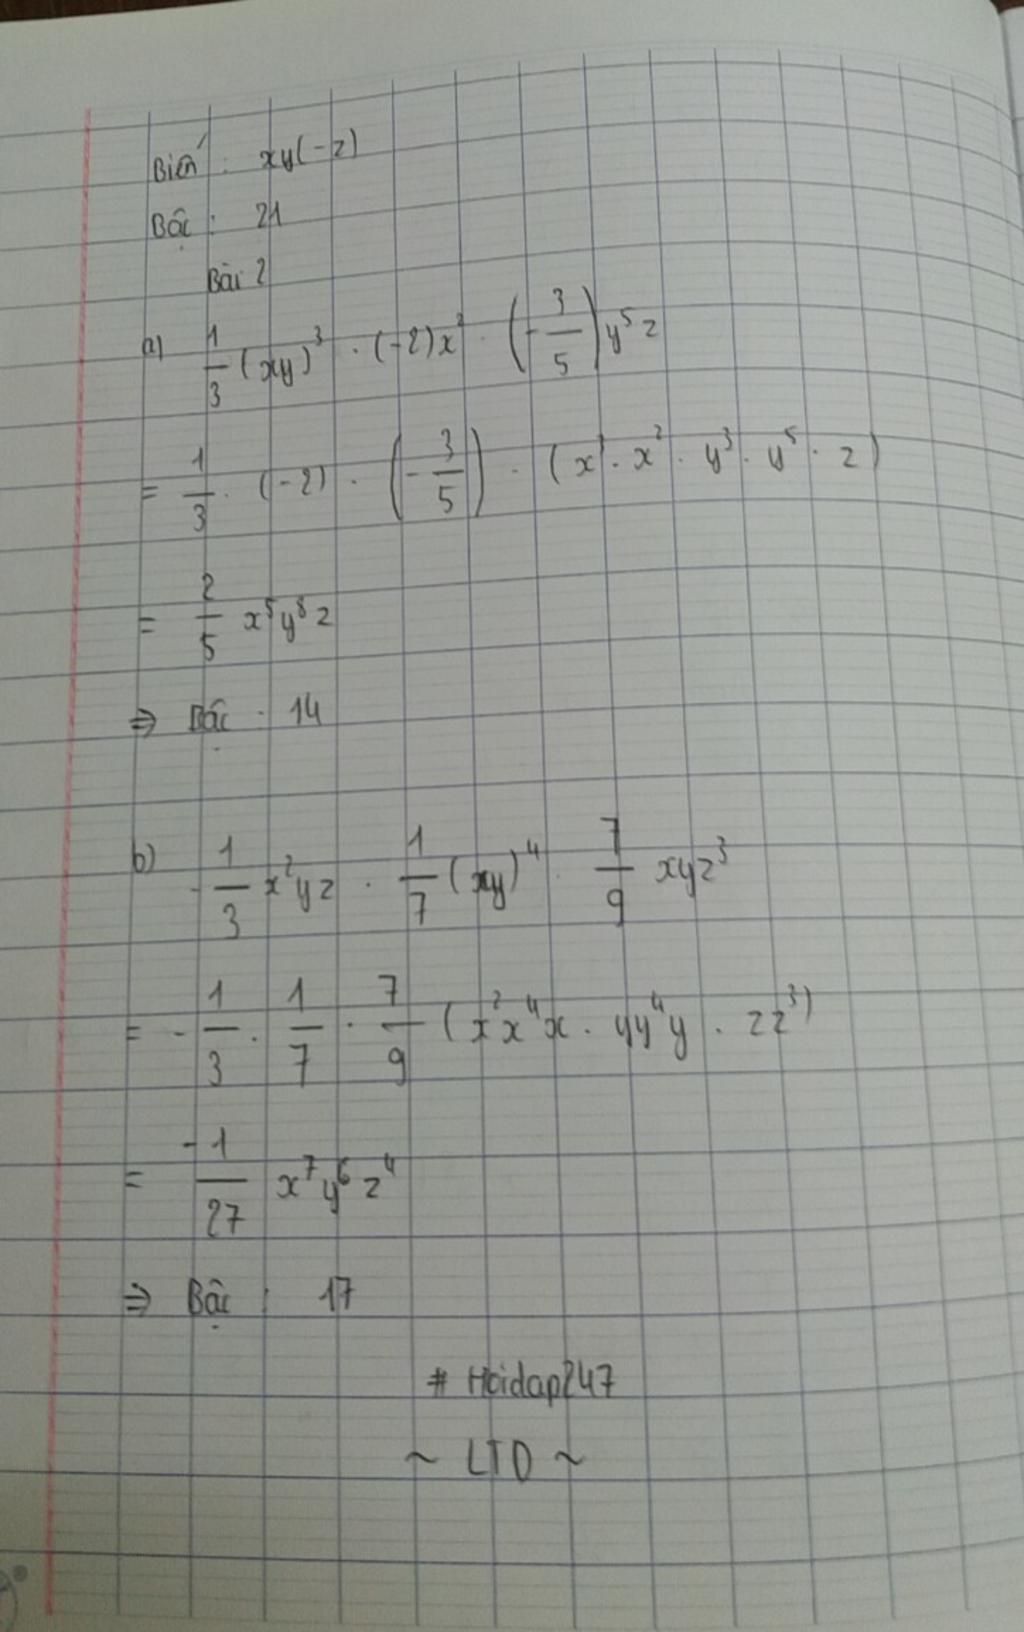 Biến : xy(-z)
Bậc : 21
Bài 2
a) 1/3 (xy)³ . (-2)x² . (-3/5) y⁵z
= 1/3 . (-2) . (-3/5) . (x³ . x² . y³ . y⁵ . z)
= 2/5 x⁵y⁸z
⇒ Bậc : 14
b) -1/3 x²yz . 1/7 (xy)⁴ . 7/9 xyz³
= -1/3 . 1/7 . 7/9 (x²x⁴x . yy⁴y . zz³)
= -1/27 x⁷y⁶z⁴
⇒ Bậc : 17
# Hoidap247
~ LTD ~